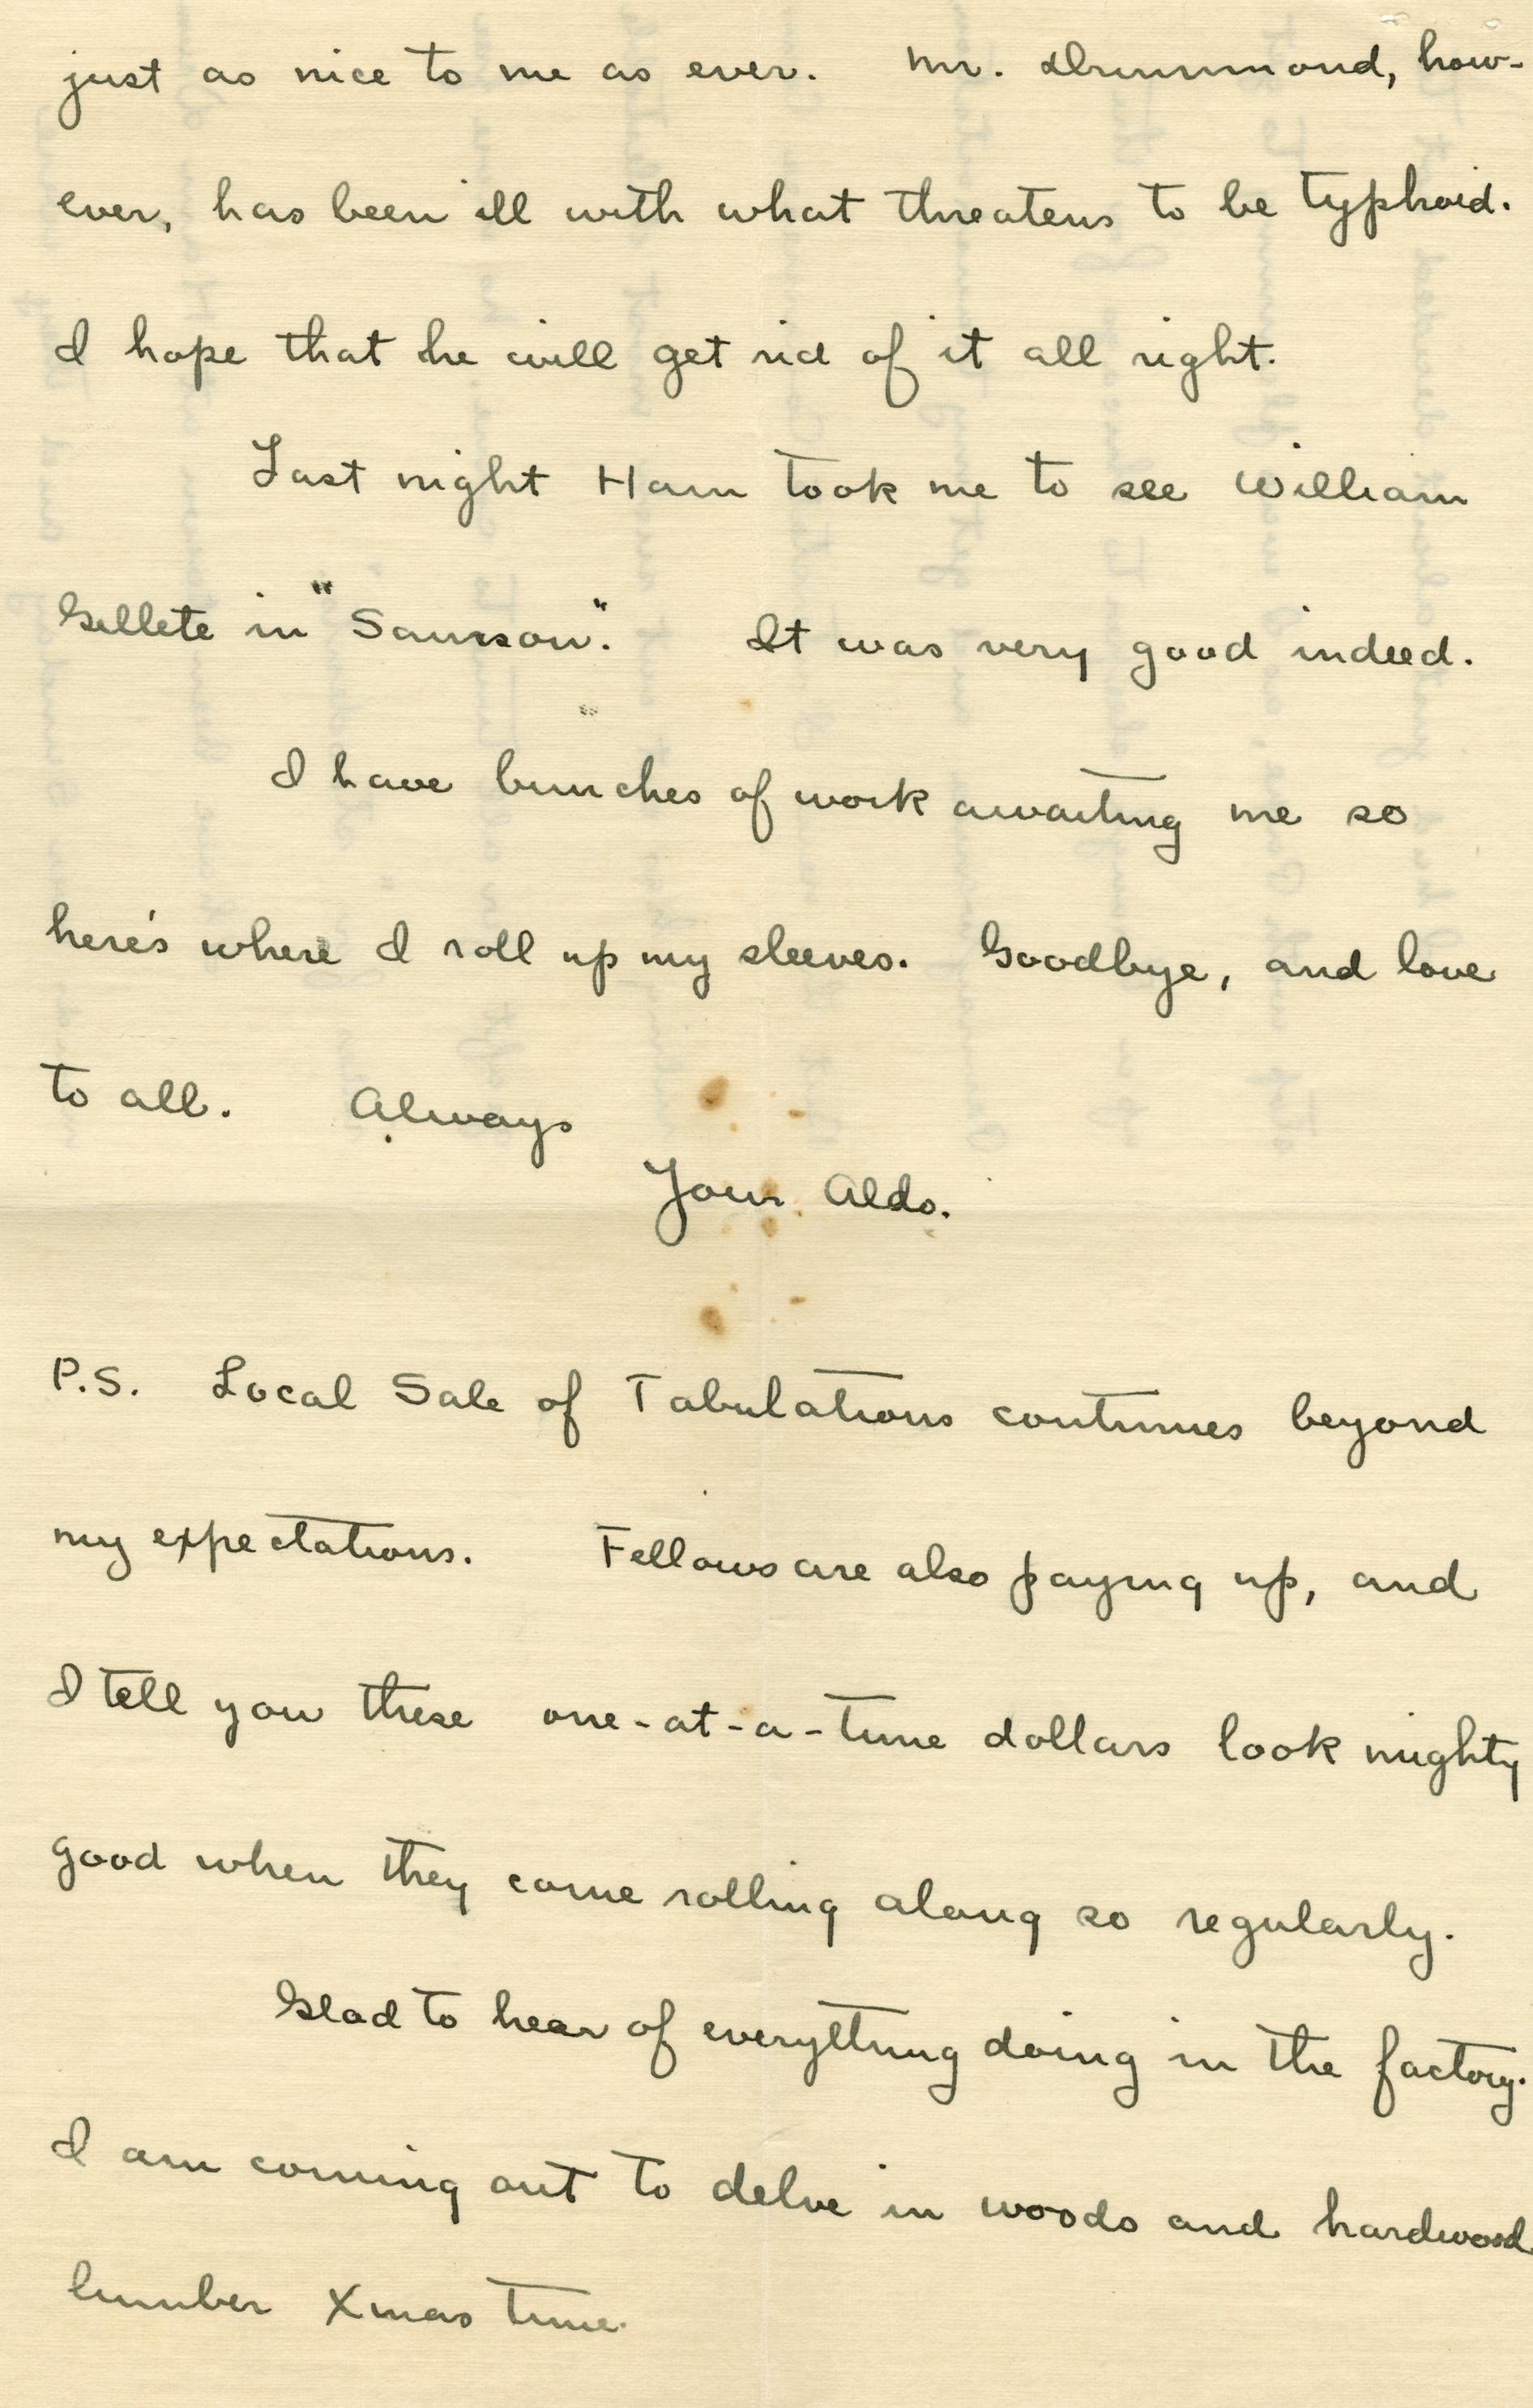 just as nice to me as ever. Mr. Drummond, how-
ever, has been ill with what threatens to be typhoid.
I hope that he will get rid of it all right.
Last night Ham took me to see William
Gillete in "Samson". It was very good indeed.
I have bunches of work awaiting me so
here's where I roll up my sleeves. Goodbye, and love
to all. Always
Your Aldo.
P.S. Local Sale of Tabulations continues beyond
my expectations. Fellows are also paying up, and
I tell you these one-at-a-time dollars look mighty
good when they come rolling along so regularly.
Glad to hear of everything doing in the factory.
I am coming out to delve in woods and hardwood
lumber Xmas time.